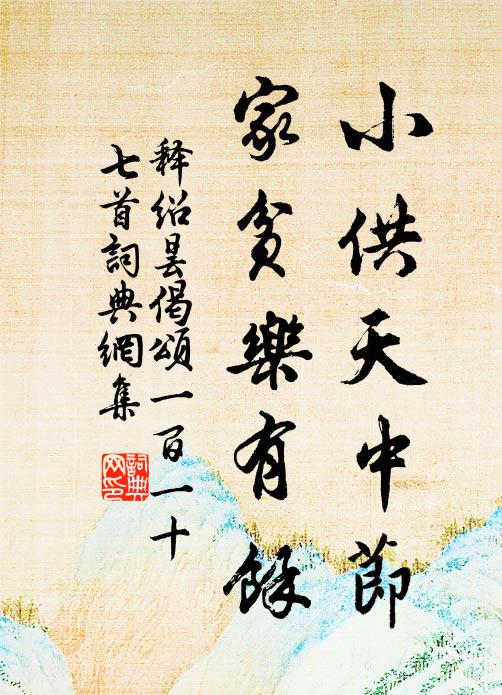 小供天中節
家貧樂有餘
释绍昙偈頌一百一十
七首詞典網集
詞典网印